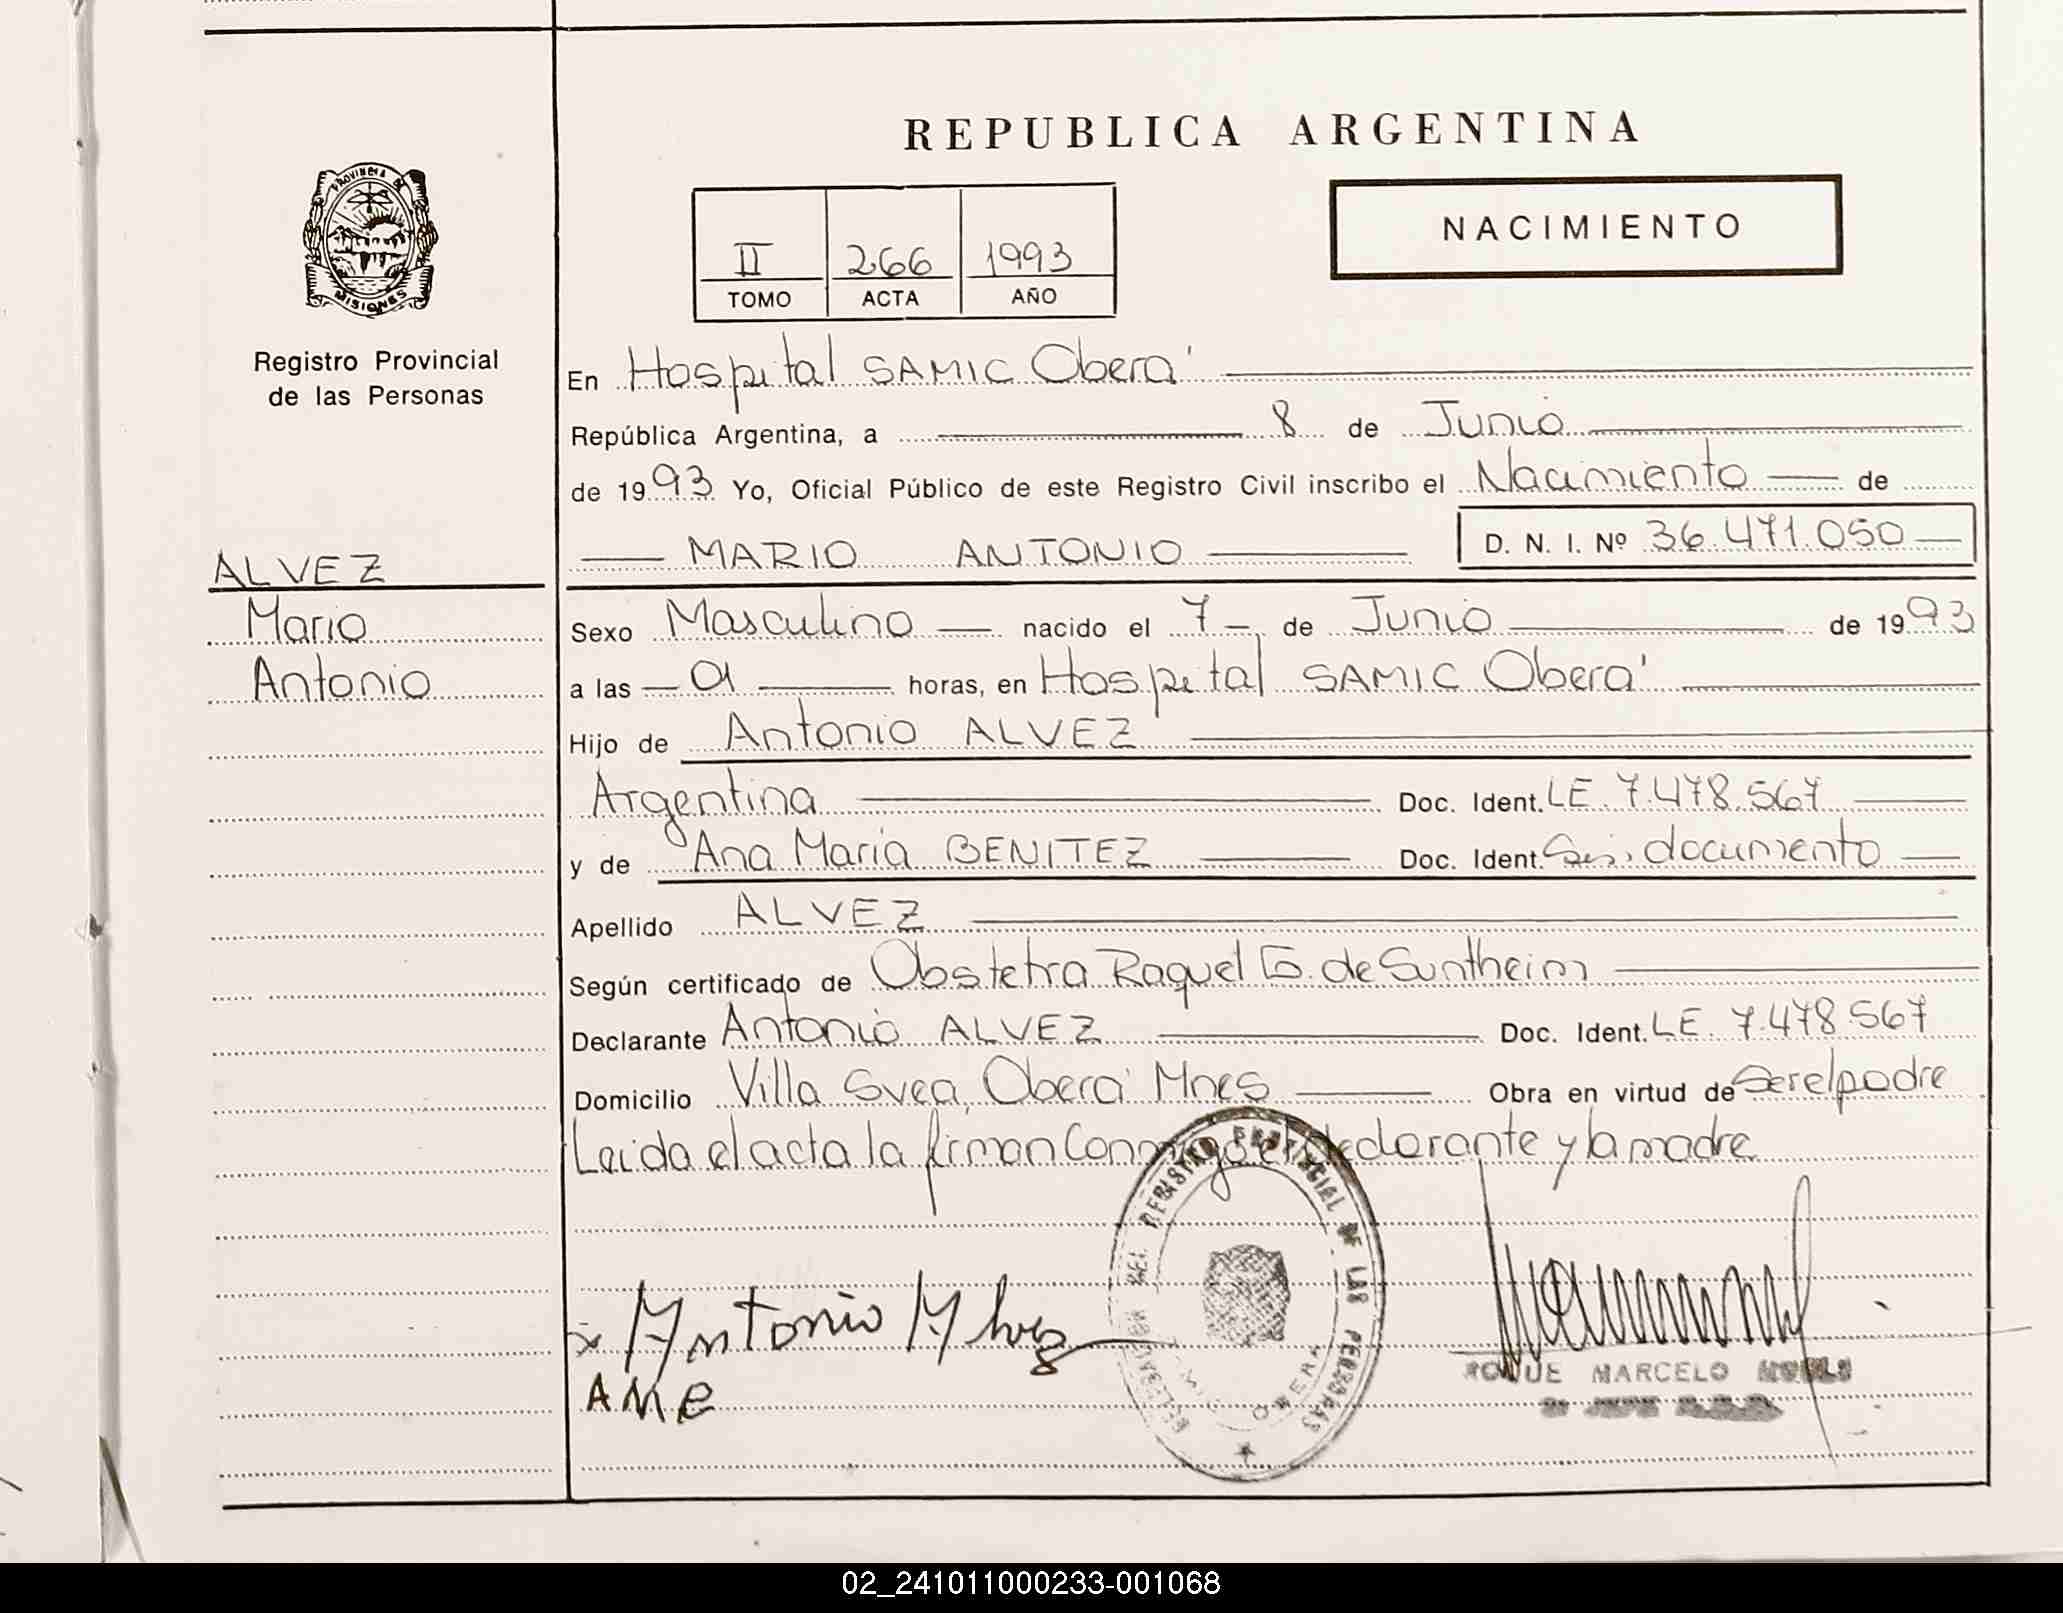 REPUBLICA ARGENTINA
NACIMIENTO
II 266 1993
TOMO ACTA AÑO
PROVINCIA DE
MISIONES
Registro Provincial
de las Personas
ALVEZ
Mario
Antonio
En Hospital SAMIC Oberá
República Argentina, a 8 de Junio
de 1993 Yo, Oficial Público de este Registro Civil inscribo el Nacimiento de
MARIO ANTONIO D. N. I. Nº 36.471.050
Sexo Masculino nacido el 7 de Junio de 1993
a las 01 horas, en Hospital SAMIC Oberá
Hijo de Antonio ALVEZ
Argentina Doc. Ident. LE. 7.478.567
y de Ana María BENITEZ Doc. Ident. documento
Apellido ALVEZ
Según certificado de Obstetra Raquel G. de Suntheim
Declarante Antonio ALVEZ Doc. Ident. LE. 7.478.567
Domicilio Villa Svea, Oberá Mnes Obra en virtud de Ser el padre
Leida el acta la firman Conmigo el declarante y la madre
x Antonio Alvez
AMB
DEL REGISTRO PROVINCIAL DE LAS PERSONAS
OBERA
ROQUE MARCELO
02_241011000233-001068